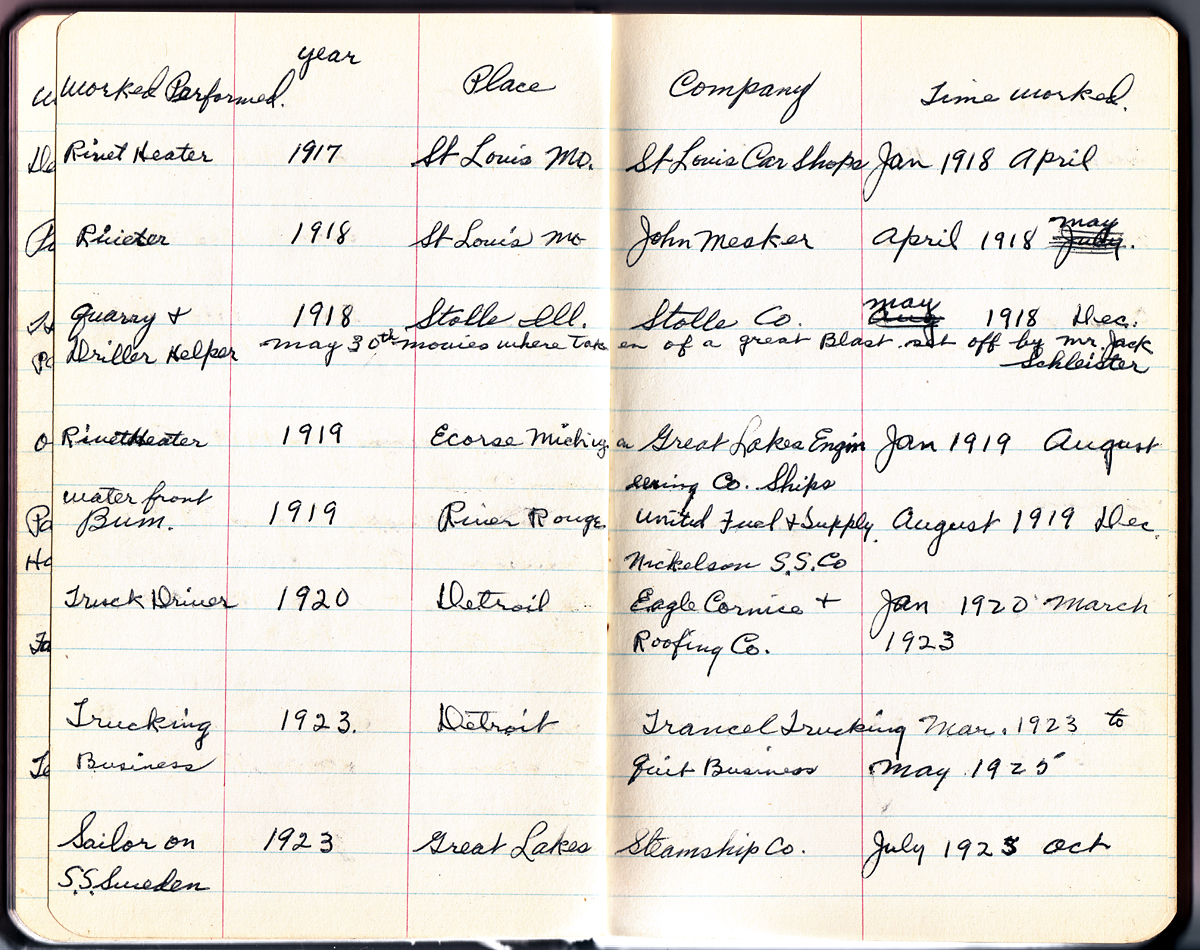 Worked Performed. year Place Company Time worked.
Rivet Heater 1917 St Louis Mo. St Louis Car Shops Jan 1918 April
Riveter 1918 St Louis Mo John Mesker April 1918 May July.
Quarry & 1918 Stolle Ill. Stolle Co. May Aug 1918 Dec.
Driller Helper May 30th movies where taken of a great Blast set off by Mr. Jack
Schleister
Rivet Heater 1919 Ecorse Michigan Great Lakes Engin Jan 1919 August
eering Co. Ships
water front
Bum. 1919 River Rouge United Fuel & Supply. August 1919 Dec.
Nickelson S.S. Co
Truck Driver 1920 Detroit Eagle Cornice & Jan 1920 March
Roofing Co. 1923
Trucking 1923. Detroit Trancel Trucking Mar. 1923 to
Business quit Business May 1925
Sailor on 1923 Great Lakes Steamship Co. July 1923 Oct
S.S. Sweden